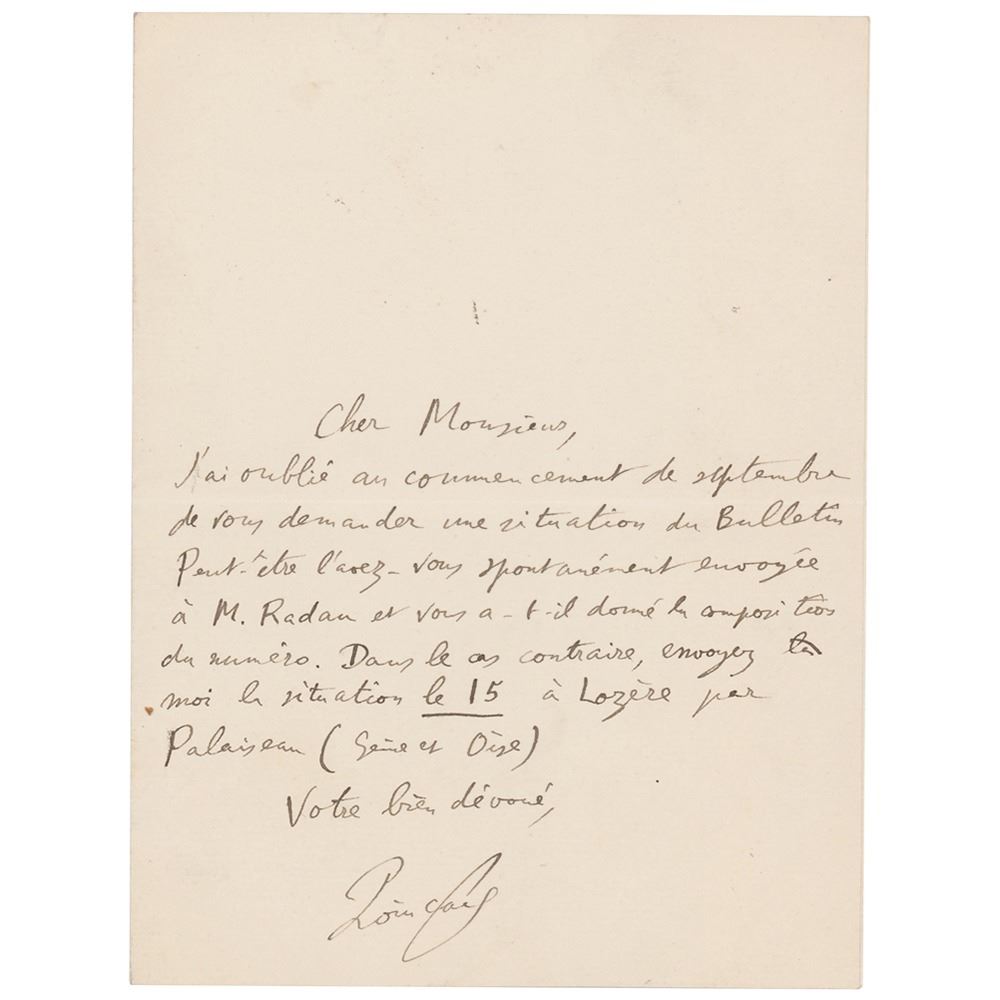 Cher Monsieur,
J'ai oublié au commencement de septembre
de vous demander une situation du Bulletin
Peut-être l'avez-vous spontanément envoyée
à M. Radau et vous a-t-il donné la composition
du numéro. Dans le cas contraire, envoyez
moi la situation le 15 à Lozère par
Palaiseau (Seine et Oise)
Votre bien dévoué,
Poincaré